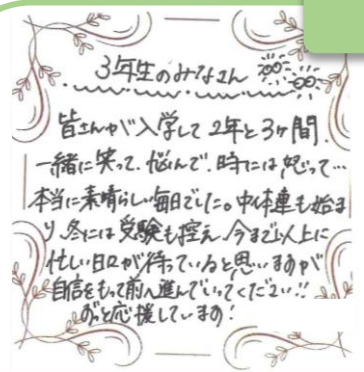 3年生のみなさん
皆さんが入学して2年と3ヶ間、
一緒に笑って、悩んで、時には怒って…
本当に素晴らしい毎日でした。中体連も始ま
り、冬には受験も控え、今まで以上に
忙しい日々が待っていると思いますが
自信をもって前へ進んでいってください!!
ずっと応援しています!